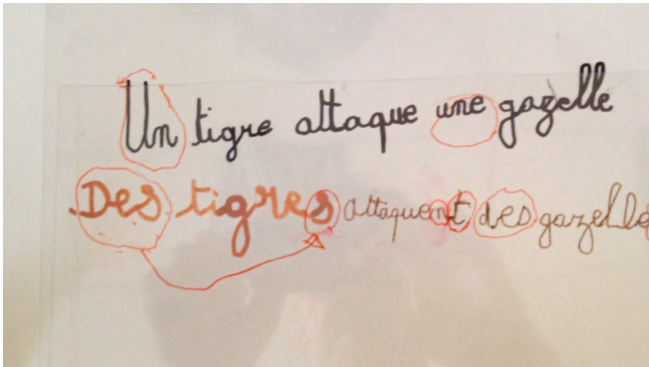 Un tigre attaque une gazelle
Des tigres attaquent des gazelle